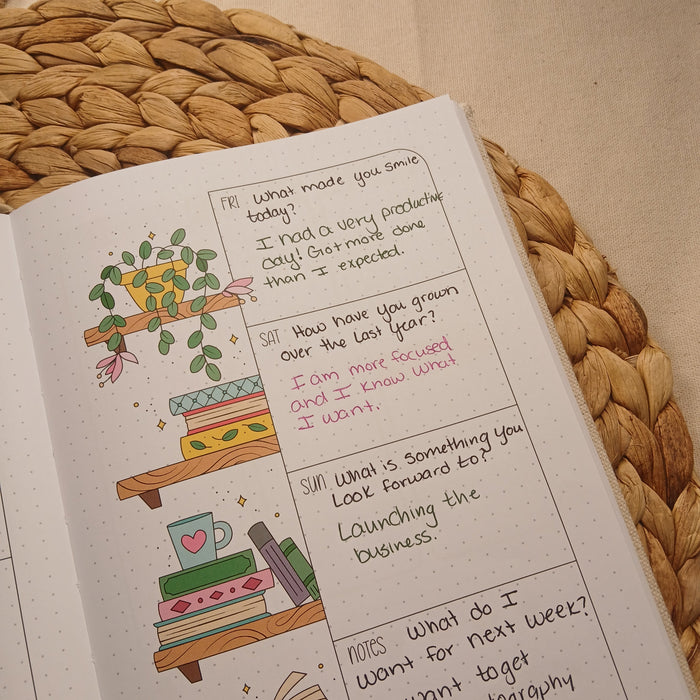 FRI What made you smile
today?
I had a very productive
day! Got more done
than I expected.
SAT How have you grown
over the last year?
I am more focused
and I know what
I want.
SUN What is something you
Look forward to?
Launching the
business.
NOTES What do I
want for next week?
want to get